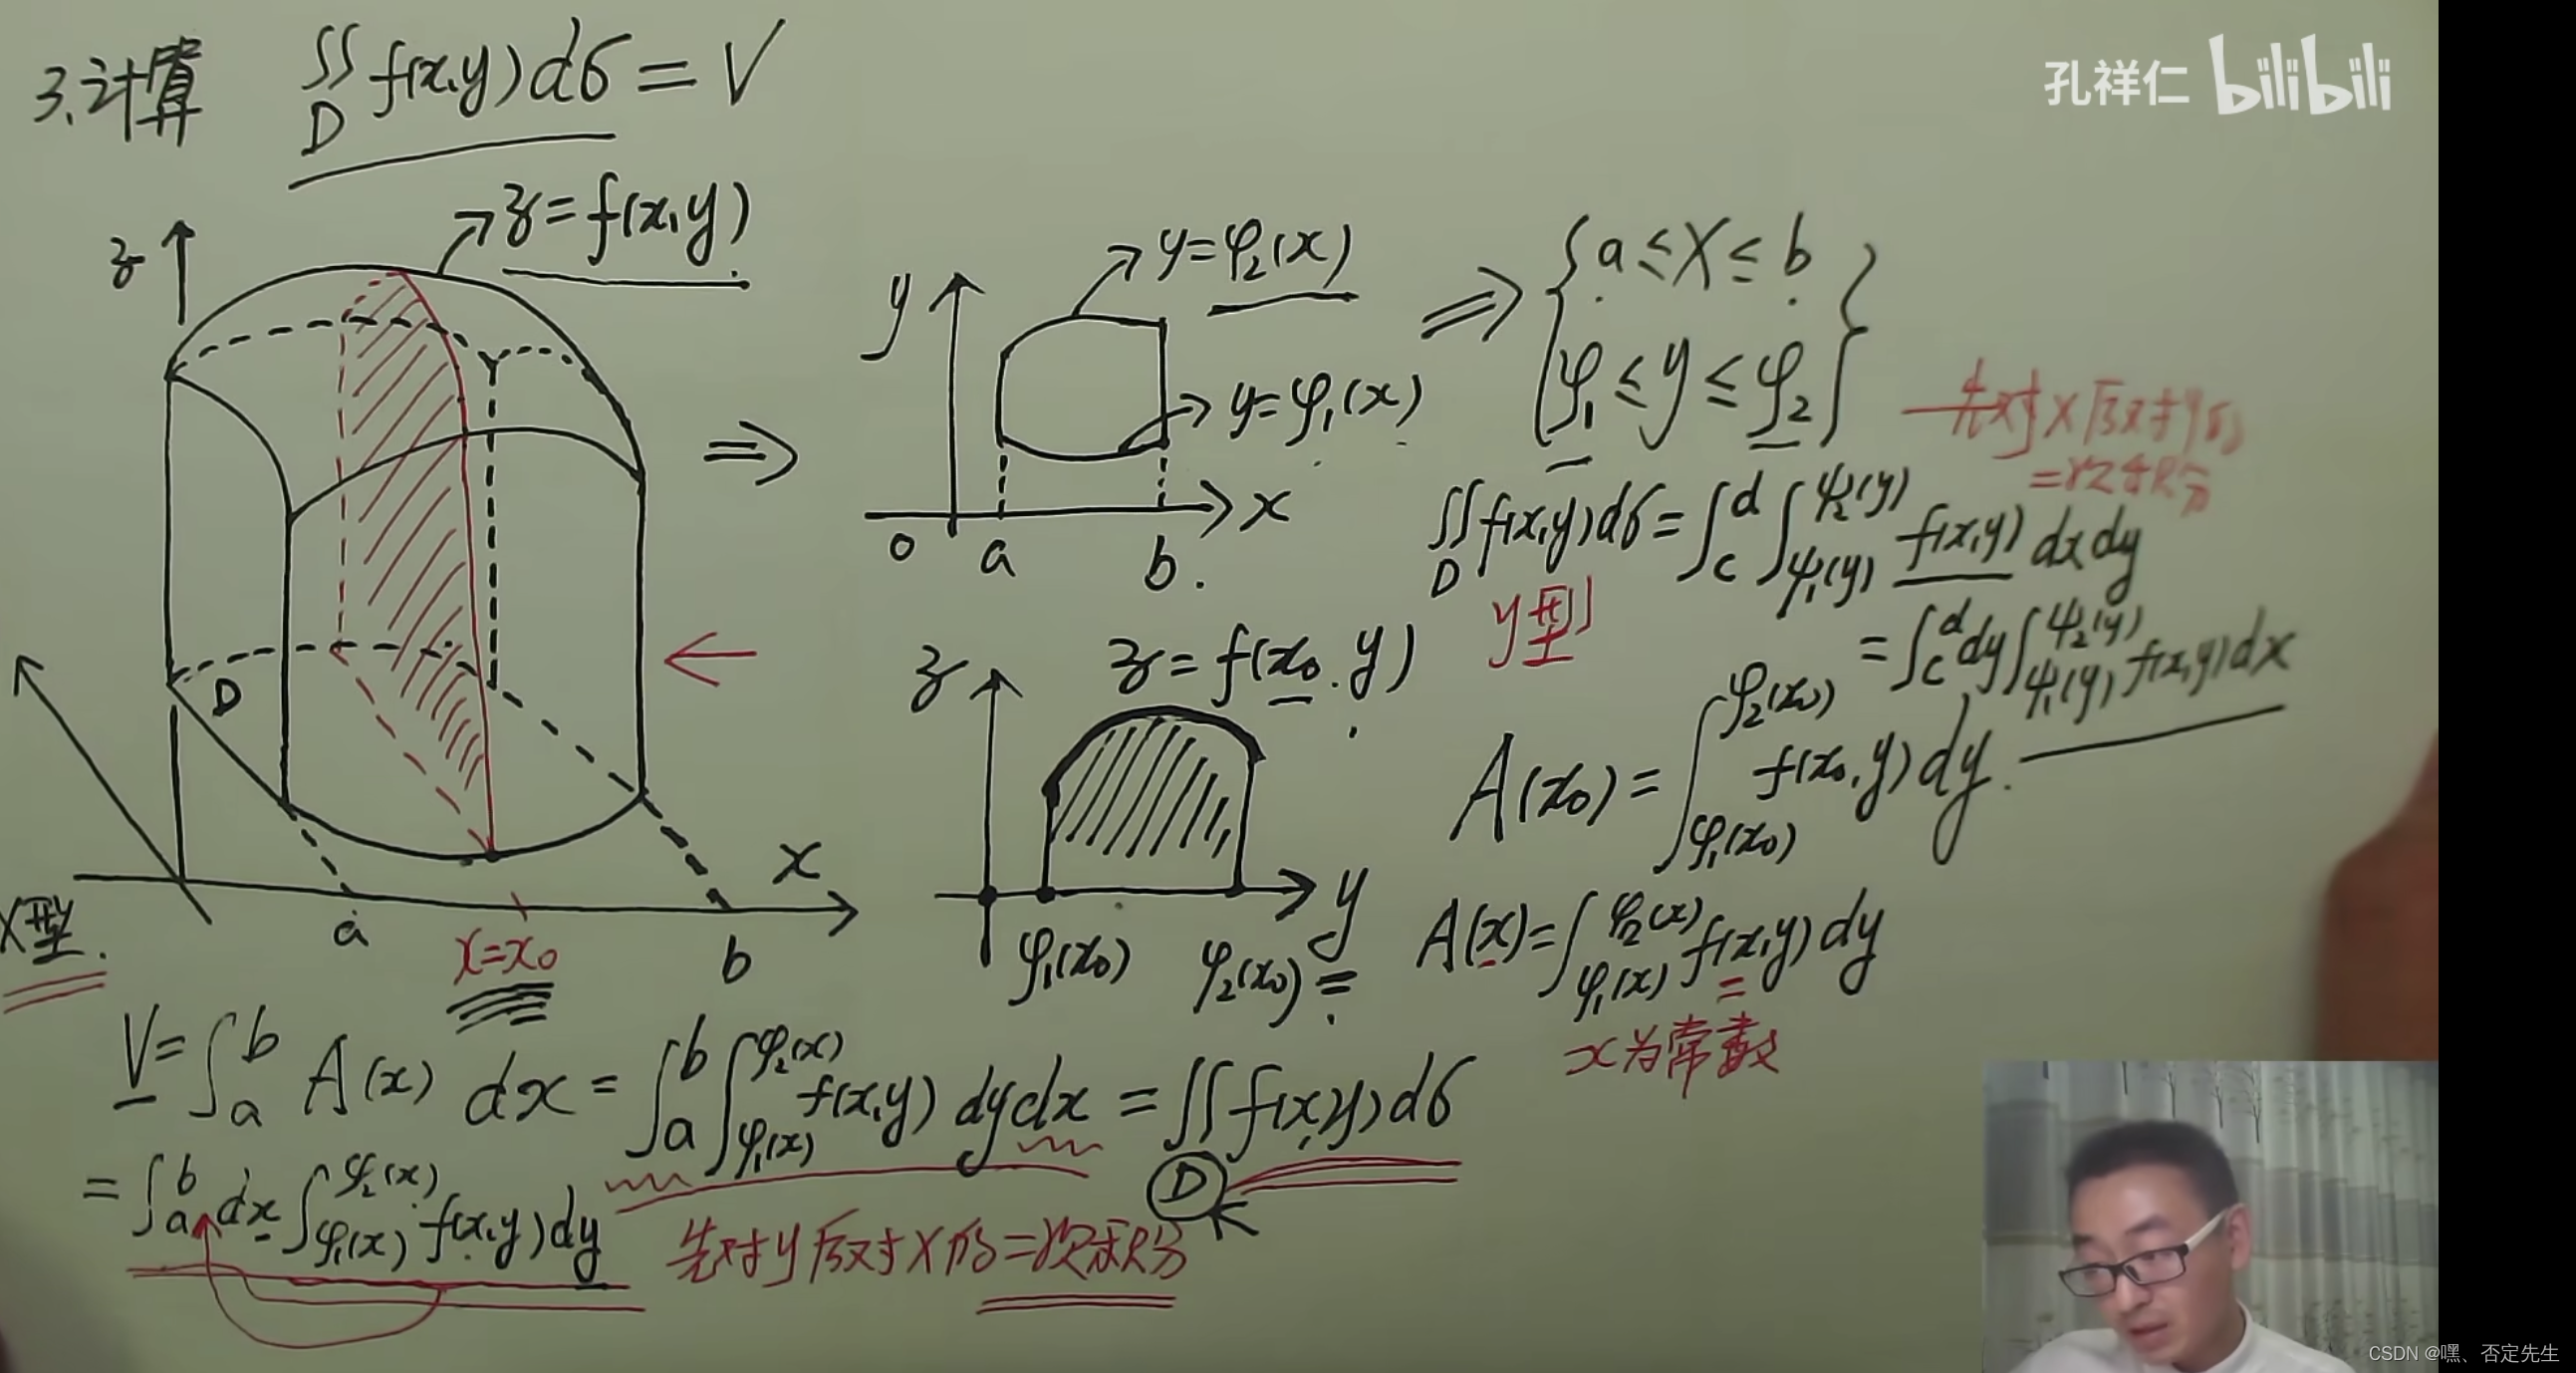 3.计算 ∬_D f(x,y)dσ = V
孔祥仁 bilibili
z
z=f(x,y)
D
a
x=x₀
b
x
X型.
y
y=φ₂(x)
y=φ₁(x)
0 a b. x
⇒ { a≤X≤b
φ₁≤y≤φ₂ }
先对X后对y的
=次积分
∬_D f(x,y)dσ=∫_c^d ∫_{ψ₁(y)}^{ψ₂(y)} f(x,y) dxdy
y型
=∫_c^d dy∫_{ψ₁(y)}^{ψ₂(y)} f(x,y)dx
z
z=f(x₀.y)
φ₁(x₀) φ₂(x₀)
y
A(x₀)=∫_{φ₁(x₀)}^{φ₂(x₀)} f(x₀,y)dy.
A(x)=∫_{φ₁(x)}^{φ₂(x)} f(x,y)dy
x为常数
V=∫_a^b A(x) dx=∫_a^b ∫_{φ₁(x)}^{φ₂(x)} f(x,y) dydx=∬_D f(x,y)dσ
=∫_a^b dx∫_{φ₁(x)}^{φ₂(x)} f(x,y)dy
先对y后对X的=次积分
CSDN @嘿、否定先生